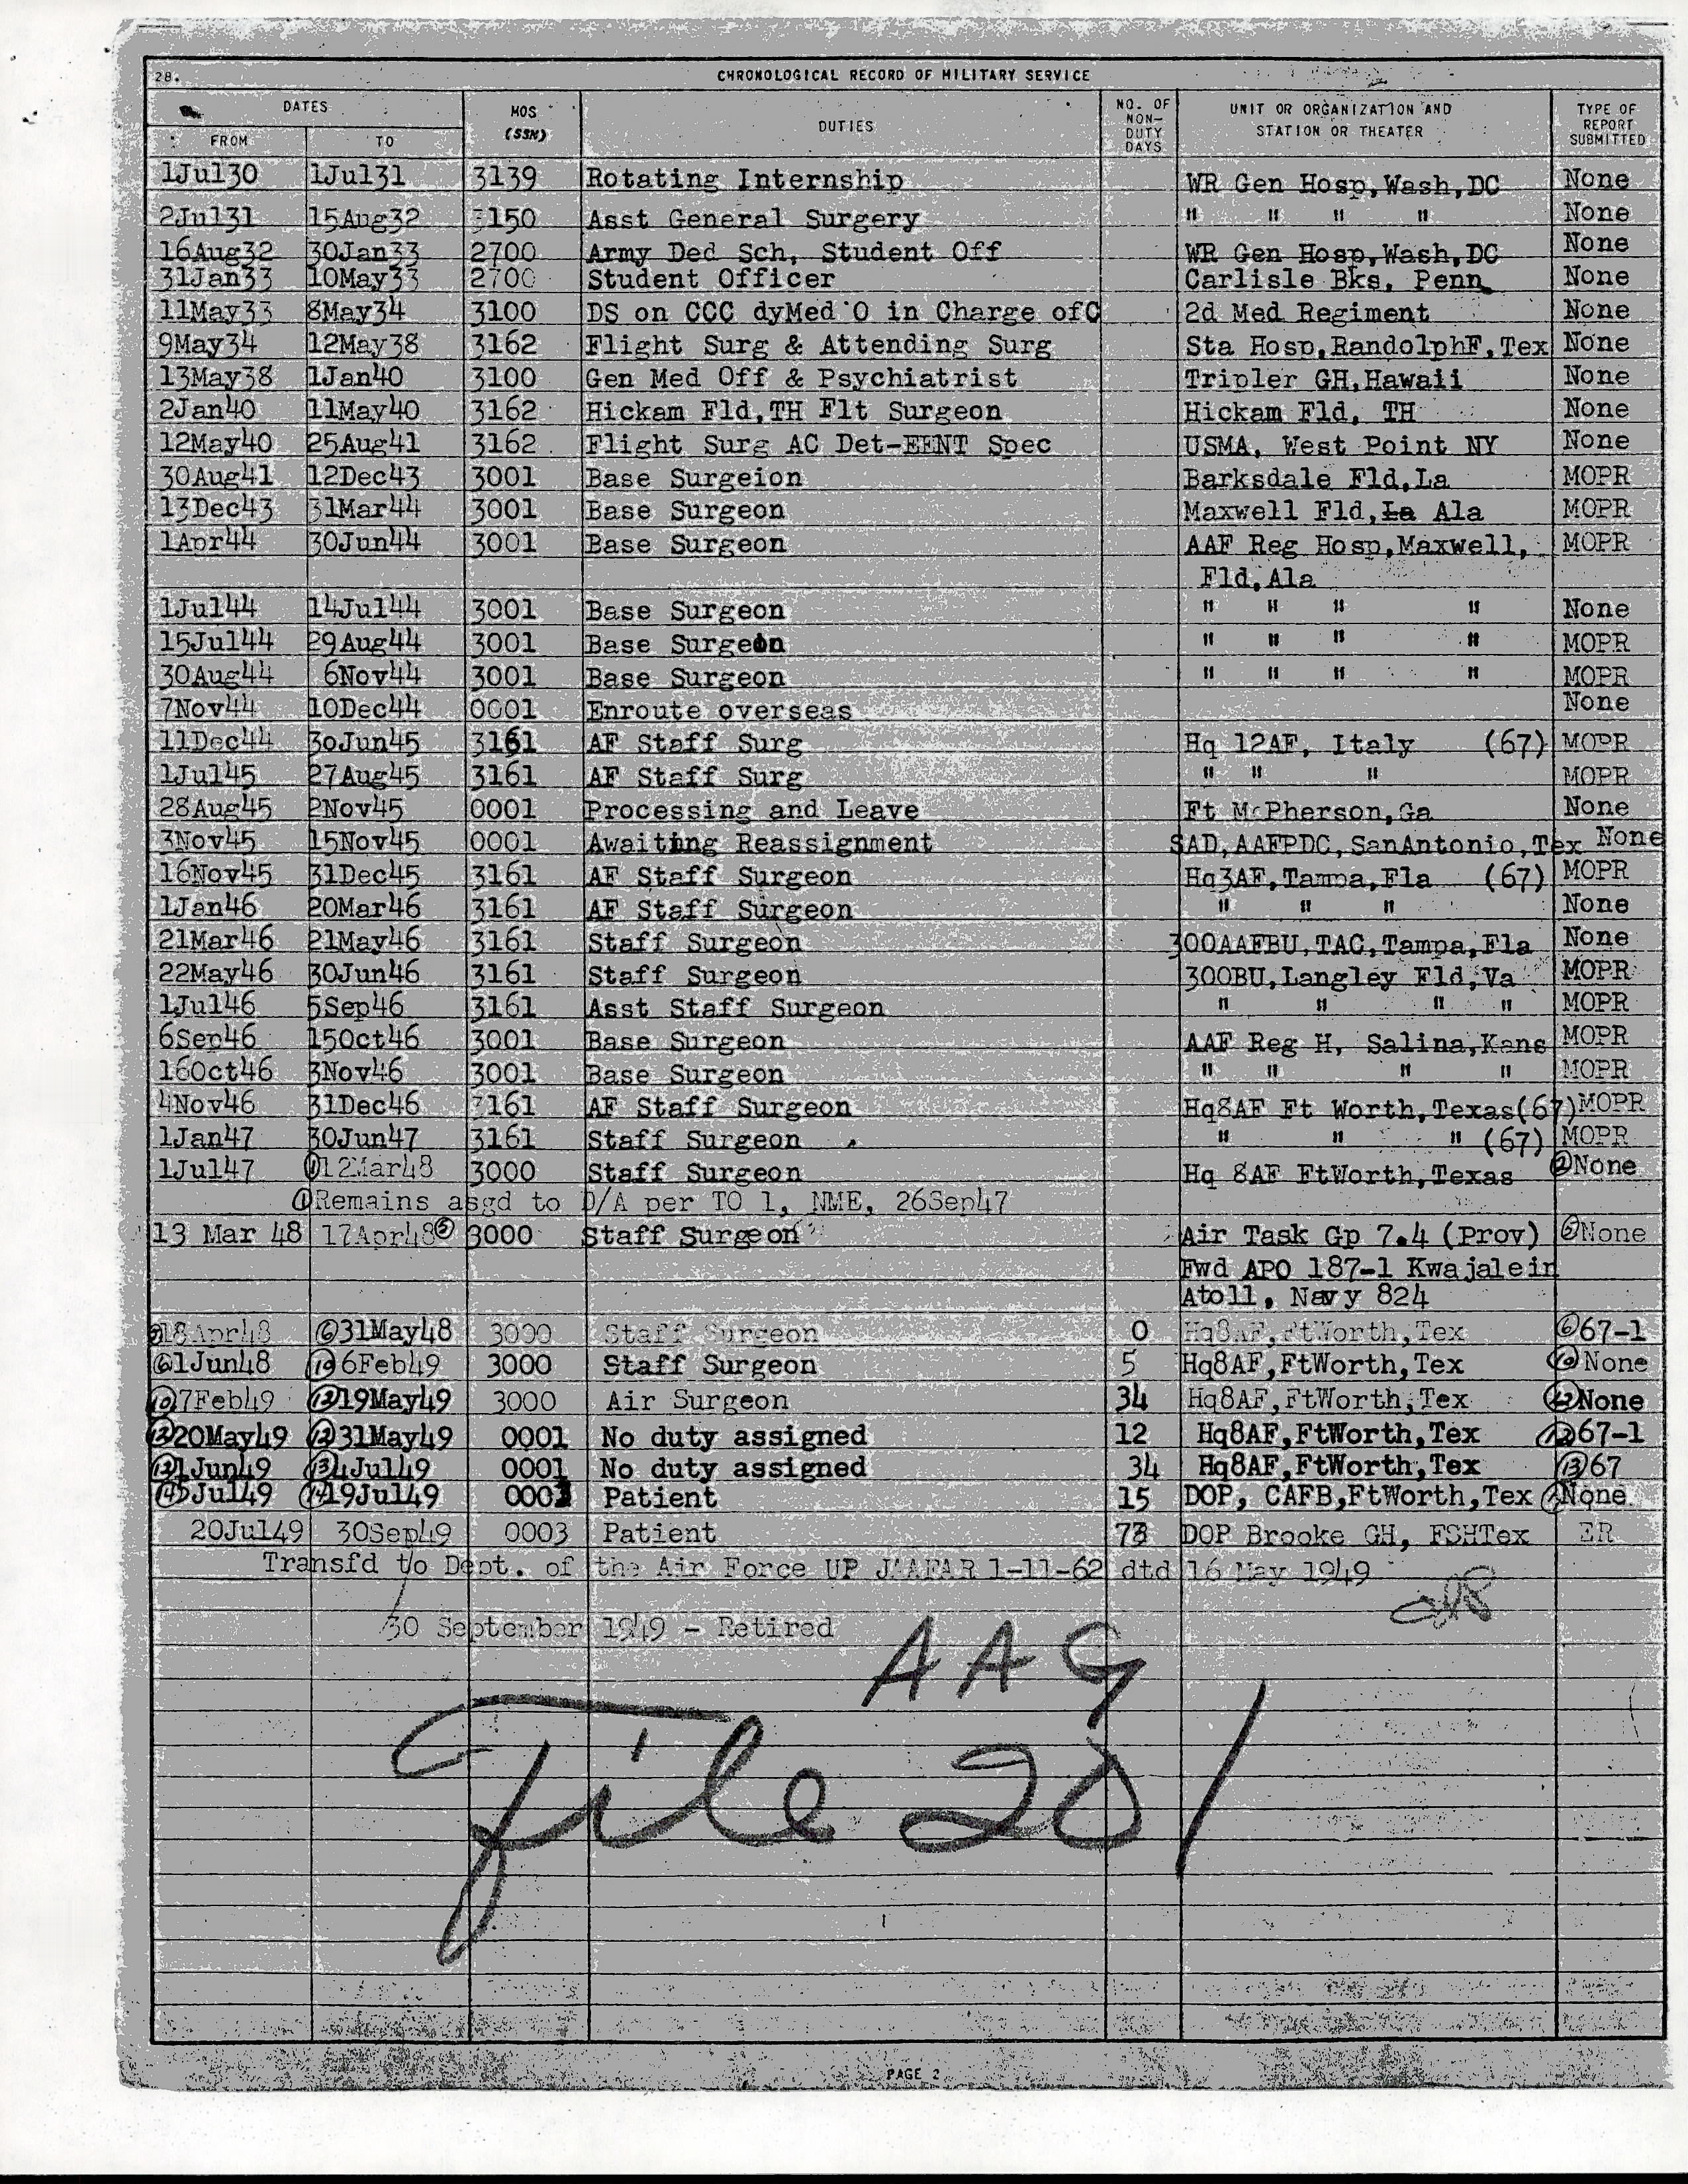 28. CHRONOLOGICAL RECORD OF MILITARY SERVICE
DATES FROM TO MOS (SSN) DUTIES NO. OF NON-DUTY DAYS UNIT OR ORGANIZATION AND STATION OR THEATER TYPE OF REPORT SUBMITTED
1Jul30 1Jul31 3139 Rotating Internship WR Gen Hosp,Wash,DC None
2Jul31 15Aug32 3150 Asst General Surgery " " " " None
16Aug32 30Jan33 2700 Army Ded Sch, Student Off WR Gen Hosp,Wash,DC None
31Jan33 10May33 2700 Student Officer Carlisle Bks, Penn None
11May33 8May34 3100 DS on CCC dyMed O in Charge ofC 2d Med Regiment None
9May34 12May38 3162 Flight Surg & Attending Surg Sta Hosp,RandolphF,Tex None
13May38 1Jan40 3100 Gen Med Off & Psychiatrist Tripler GH,Hawaii None
2Jan40 11May40 3162 Hickam Fld,TH Flt Surgeon Hickam Fld, TH None
12May40 25Aug41 3162 Flight Surg AC Det-EENT Spec USMA, West Point NY None
30Aug41 12Dec43 3001 Base Surgeion Barksdale Fld,La MOPR
13Dec43 31Mar44 3001 Base Surgeon Maxwell Fld,La Ala MOPR
1Apr44 30Jun44 3001 Base Surgeon AAF Reg Hosp,Maxwell, MOPR
Fld,Ala
1Jul44 14Jul44 3001 Base Surgeon " " " " None
15Jul44 29Aug44 3001 Base Surgeon " " " " MOPR
30Aug44 6Nov44 3001 Base Surgeon " " " " MOPR
7Nov44 10Dec44 0001 Enroute overseas None
11Dec44 30Jun45 3161 AF Staff Surg Hq 12AF, Italy (67) MOPR
1Jul45 27Aug45 3161 AF Staff Surg " " " MOPR
28Aug45 2Nov45 0001 Processing and Leave Ft McPherson,Ga None
3Nov45 15Nov45 0001 Awaiting Reassignment SAD,AAFPDC,SanAntonio,Tex None
16Nov45 31Dec45 3161 AF Staff Surgeon Hq3AF,Tampa,Fla (67) MOPR
1Jan46 20Mar46 3161 AF Staff Surgeon " " " None
21Mar46 21May46 3161 Staff Surgeon 300AAFBU,TAC,Tampa,Fla None
22May46 30Jun46 3161 Staff Surgeon 300BU,Langley Fld,Va MOPR
1Jul46 5Sep46 3161 Asst Staff Surgeon " " " " MOPR
6Sep46 15Oct46 3001 Base Surgeon AAF Reg H, Salina,Kans MOPR
16Oct46 3Nov46 3001 Base Surgeon " " " " MOPR
4Nov46 31Dec46 3161 AF Staff Surgeon Hq8AF Ft Worth,Texas(67) MOPR
1Jan47 30Jun47 3161 Staff Surgeon " " " (67) MOPR
1Jul47 ①12Mar48 3000 Staff Surgeon Hq 8AF FtWorth,Texas ②None
①Remains asgd to D/A per TO 1, NME, 26Sep47
13 Mar 48 17Apr48⑤ 3000 Staff Surgeon Air Task Gp 7.4 (Prov) ⑤None
Fwd APO 187-1 Kwajalein
Atoll, Navy 824
⑤18Apr48 ⑥31May48 3000 Staff Surgeon 0 Hq8AF,FtWorth,Tex ⑥67-1
⑥1Jun48 ⑩6Feb49 3000 Staff Surgeon 5 Hq8AF,FtWorth,Tex ⑩None
⑩7Feb49 ⑫19May49 3000 Air Surgeon 34 Hq8AF,FtWorth,Tex ⑫None
⑫20May49 ⑫31May49 0001 No duty assigned 12 Hq8AF,FtWorth,Tex ⑫67-1
⑫1Jun49 ⑬4Jul49 0001 No duty assigned 34 Hq8AF,FtWorth,Tex ⑬67
⑭5Jul49 ⑭19Jul49 0003 Patient 15 DOP, CAFB,FtWorth,Tex None
20Jul49 30Sep49 0003 Patient 73 DOP Brooke GH, FSHTex ER
Transfd to Dept. of the Air Force UP JAAFAR 1-11-62 dtd 16 May 1949
30 September 1949 - Retired
AAG
File 201
PAGE 2